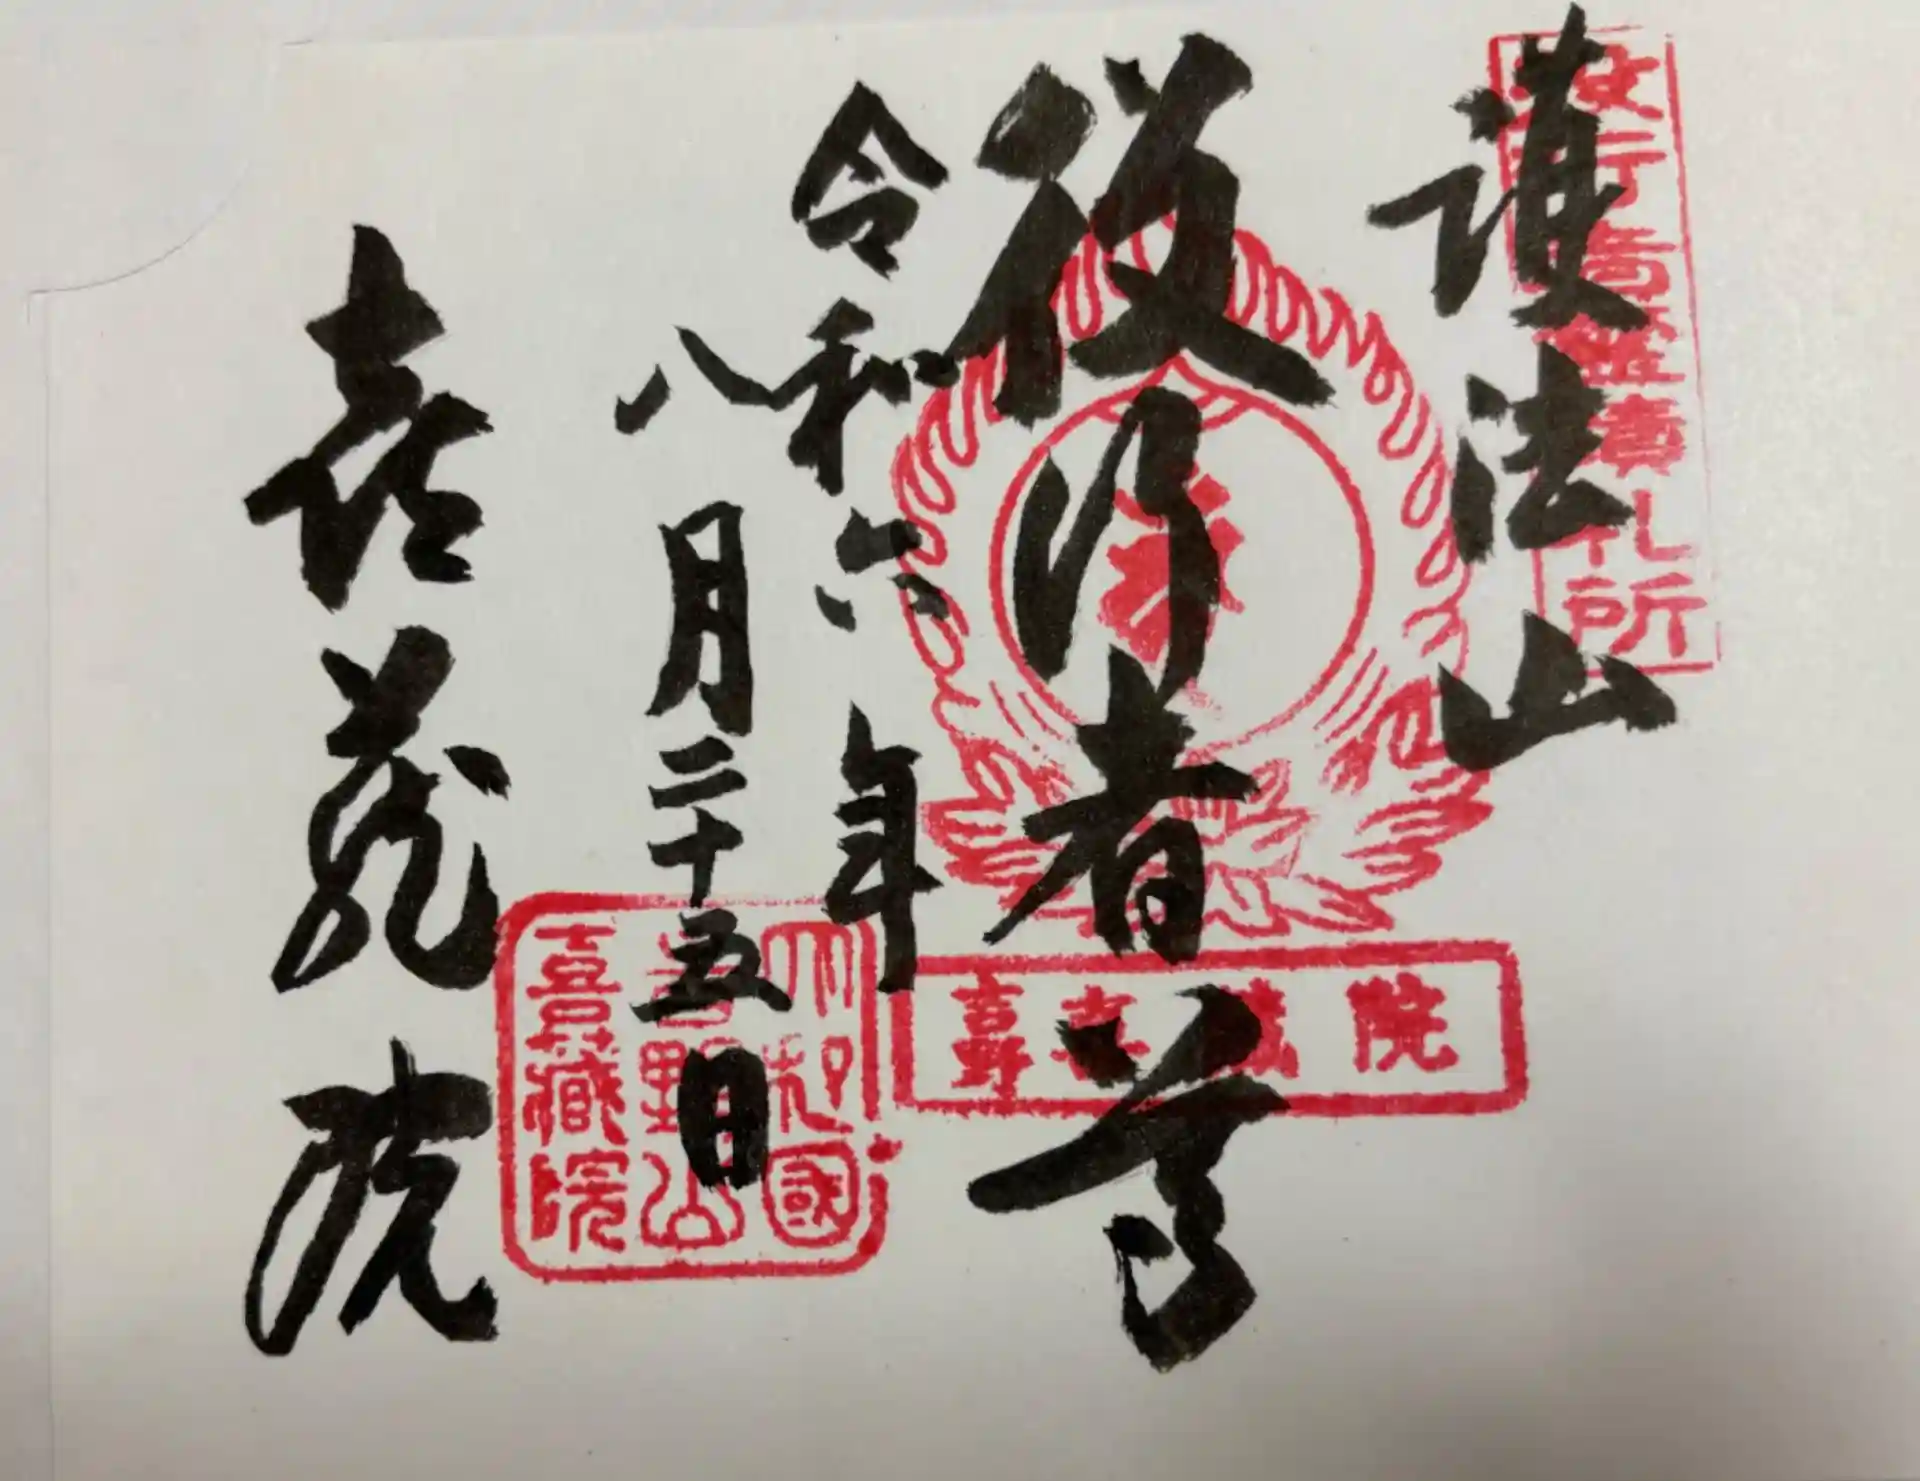 役行者霊蹟札所
護法山
役行者尊
令和六年
八月二十五日
喜蔵院
吉野喜蔵院
大和國
吉野山
喜藏院